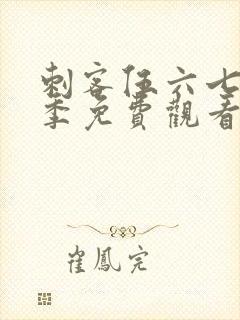 刺客伍六七
季免費觀看
崔鳳完